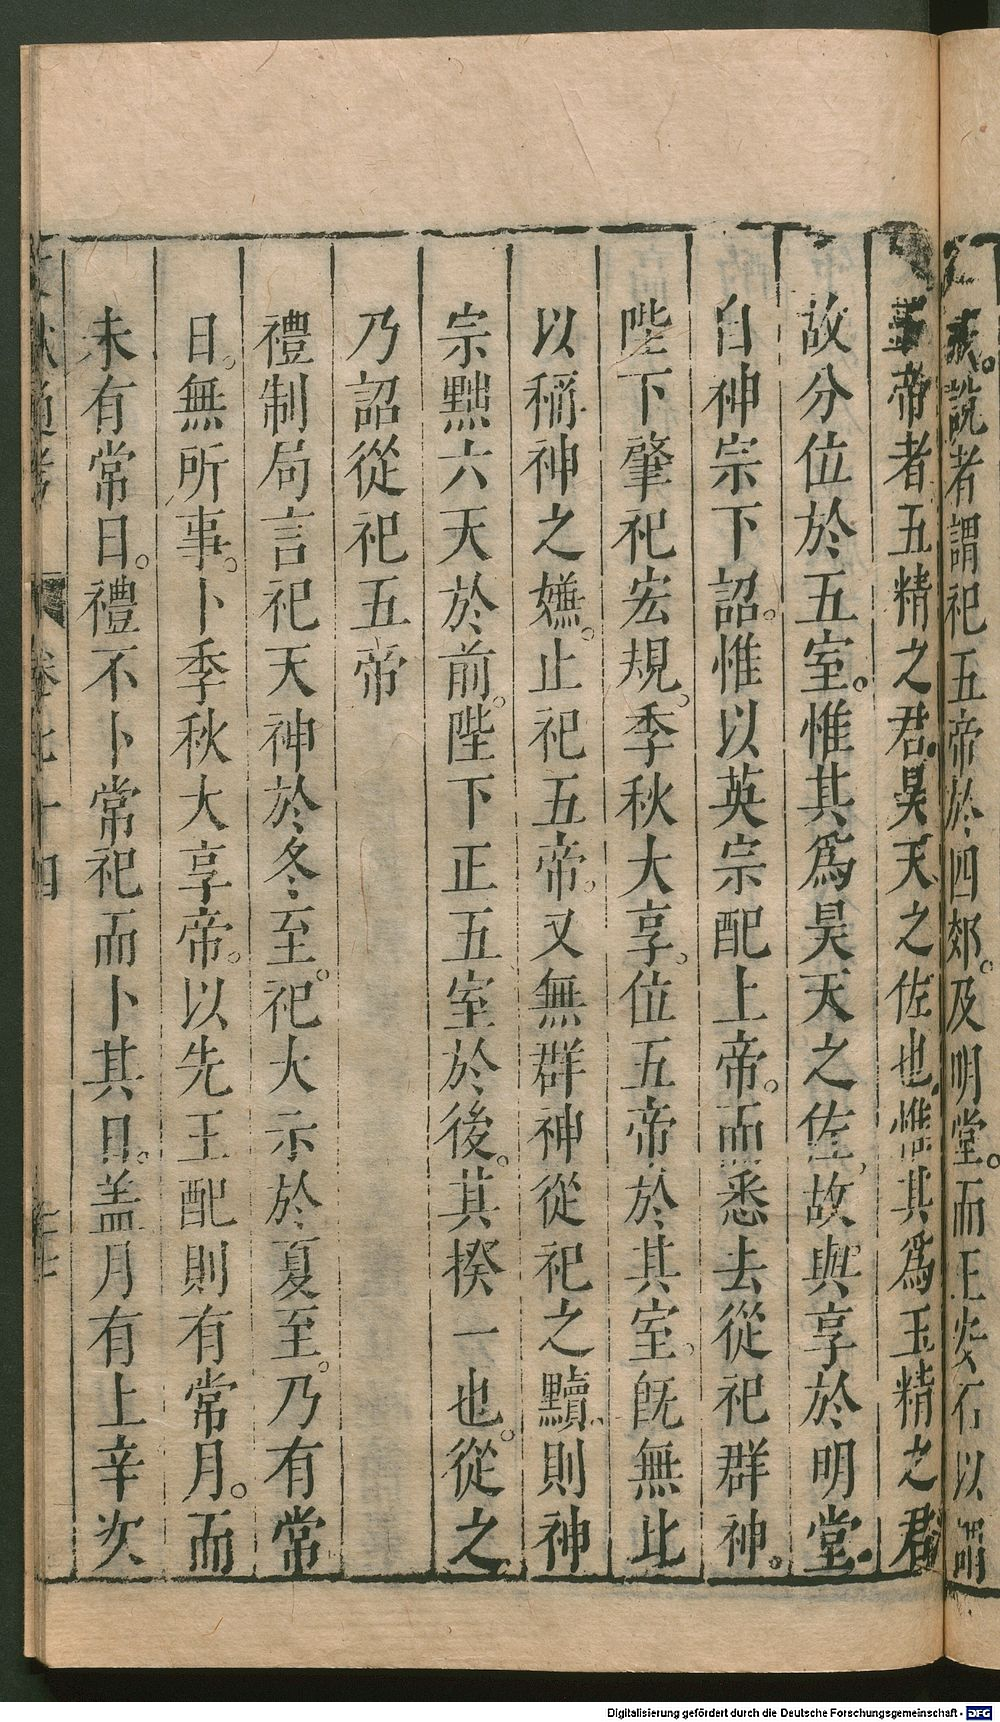 裘說者謂祀五帝於四郊。及明堂。而王安石以謂
五帝者五精之君。昊天之佐也。惟其爲五精之君
故分位於五室。惟其爲昊天之佐。故與享於明堂。
自神宗下詔。惟以英宗配上帝。而悉去從祀群神。
陛下肇祀宏規。季秋大享。位五帝於其室。旣無此
以稱神之嫌。止祀五帝。又無群神從祀之黷。則神
宗黜六天於前。陛下正五室於後。其揆一也。從之
乃詔從祀五帝
禮制局言祀天神於冬至。祀大示於夏至。乃有常
日。無所事。卜季秋大享帝。以先王配則有常月。而
未有常日。禮不卜常祀而卜其日。盖月有上辛次
獻通考 卷七十四
Digitalisierung gefördert durch die Deutsche Forschungsgemeinschaft - DFG